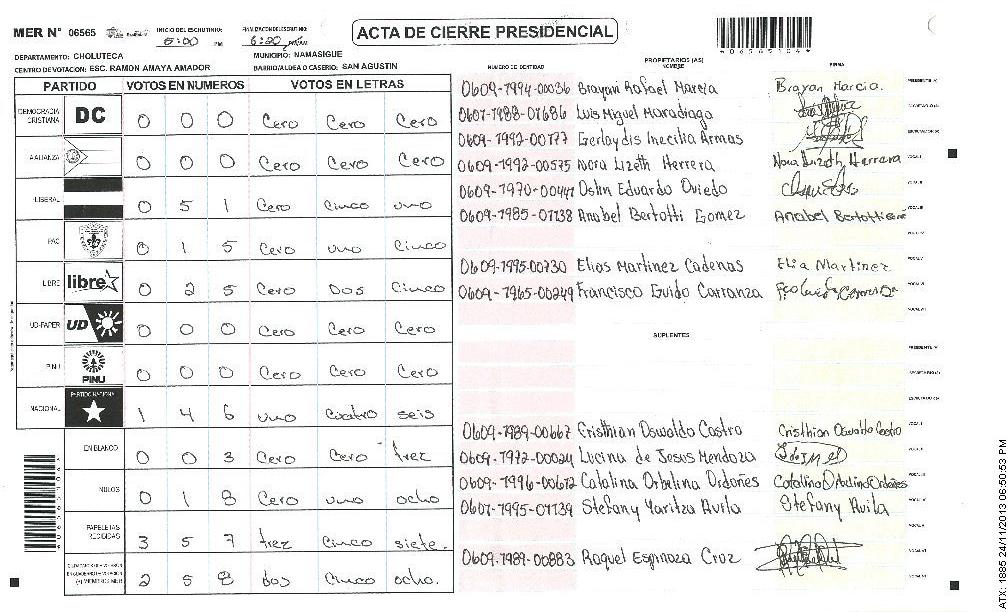 MER Nº 06565 INICIO DEL ESCRUTINIO: 5:00 PM 6:20 ACTA DE CIERRE PRESIDENCIAL
DEPARTAMENTO: CHOLUTECA MUNICIPIO: NAMASIGUE
CENTRO DE VOTACION: ESC. RAMON AMAYA AMADOR BARRIO/ALDEA O CASERIO: SAN AGUSTIN
PARTIDO VOTOS EN NUMEROS VOTOS EN LETRAS
DEMOCRACIA CRISTIANA DC 0 0 0 Cero Cero Cero
ALIANZA 0 0 0 Cero Cero Cero
LIBERAL 0 5 1 Cero Cinco uno
PAC 0 1 5 Cero uno Cinco
LIBRE libre 0 2 5 Cero Dos Cinco
UD-FAPER UD 0 0 0 Cero Cero Cero
PINU PINU 0 0 0 Cero Cero Cero
NACIONAL PARTIDO NACIONAL 1 4 6 uno cuatro seis
EN BLANCO 0 0 3 Cero Cero trez
NULOS 0 1 8 Cero uno ocho
PAPELETAS RECIBIDAS 3 5 7 trez Cinco siete.
2 5 8 dos Cinco ocho.
NUMERO DE IDENTIDAD PROPIETARIOS (AS) NOMBRE FIRMA
0609-1994-00036 Brayan Rafael Marcia Brayan Marcia.
0607-1988-01686 Luis Miguel Maradiaga
0609-1992-00777 Gerlaydis Inecilia Armas
0609-1992-00575 Nora Lizeth Herrera Nora Lizeth Herrera
0609-1970-00441 Oslin Eduardo Oviedo
0609-1985-01138 Anabel Bertotti Gomez Anabel Bertotti
0609-1995-00730 Elias Martinez Cadenas Elia Martinez
0609-1965-00249 Francisco Guido Carranza
SUPLENTES
0609-1989-00667 Cristhian Oswaldo Castro Cristhian Oswaldo Castro
0609-1972-00024 Lucina de Jesus Mendoza
0609-1996-00672 Catalina Orbelina Ordoñes
0607-1995-01139 Stefany Yaritza Avila Stefany Avila
0609-1989-00883 Raquel Espinoza Cruz
ATX: 1885 24/11/2013 06:50:53 PM